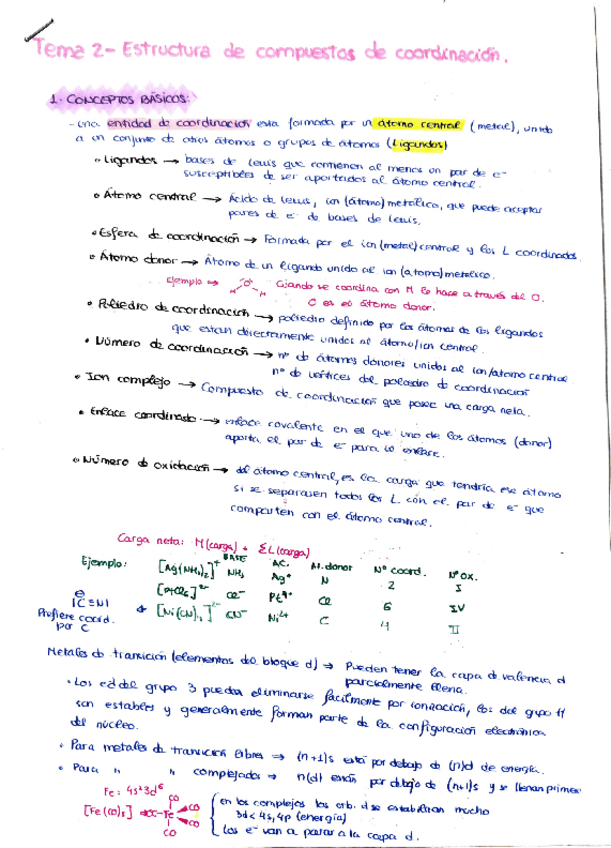 Tema 2- Estructura de compuestos de coordinación.
1. CONCEPTOS BÁSICOS:
- una entidad de coordinación esta formada por un átomo central (metal), unido
a un conjunto de otros átomos o grupos de átomos (Ligandos)
• Ligandos → bases de Lewis que contienen al menos un par de e-
susceptibles de ser aportados al átomo central.
• Átomo central → Ácido de Lewis, ion (átomo) metálico, que puede aceptar
pares de e- de bases de Lewis.
• Esfera de coordinación → Formada por el ion (metal) central y los L coordinados.
• Átomo donor → Átomo de un ligando unido al ion (átomo) metálico.
Ejemplo → O Cuando se coordina con M lo hace a través del O.
O es el átomo donor.
• Poliedro de coordinación → poliedro definido por los átomos de los ligandos
que estan directamente unidos al átomo/ion central.
• Número de coordinación → nº de átomos donores unidos al ion/átomo central
nº de vértices del poliedro de coordinación
• Ion complejo → Compuesto de coordinación que posee una carga neta.
• Enlace coordinado → enlace covalente en el que uno de los átomos (donor)
aporta el par de e- para el enlace.
• Número de oxidación → del átomo central, es la carga que tendría ese átomo
si se separasen todos los L con el par de e- que
comparten con el átomo central.
Carga neta: M(carga) + ΣL(carga)
BASE AC. At. donor Nº coord. Nº ox.
Ejemplo: [Ag(NH3)2]+ NH3 Ag+ N 2 I
[PtCl6]2- Cl- Pt4+ Cl 6 IV
[Ni(CN)4]2- CN- Ni2+ C 4 II
|C≡N|
Prefiere coord.
por C
Metales de transición (elementos del bloque d) → Pueden tener la capa de valencia d
parcialmente llena.
• Los e- d del grupo 3 pueden eliminarse fácilmente por ionización, los del grupo 11
son estables y generalmente forman parte de la configuración electrónica
del núcleo.
• Para metales de transición libres → (n+1)s está por debajo de (n)d de energía.
• Para " " complejados → n(d) están por debajo de (n+1)s y se llenan primero
Fe: 4s² 3d⁶
[Fe(CO)5] → OC-Fe CO CO CO CO
en los complejos los orb. d se estabilizan mucho
3d < 4s, 4p (energía)
Los e- van a pasar a la capa d.